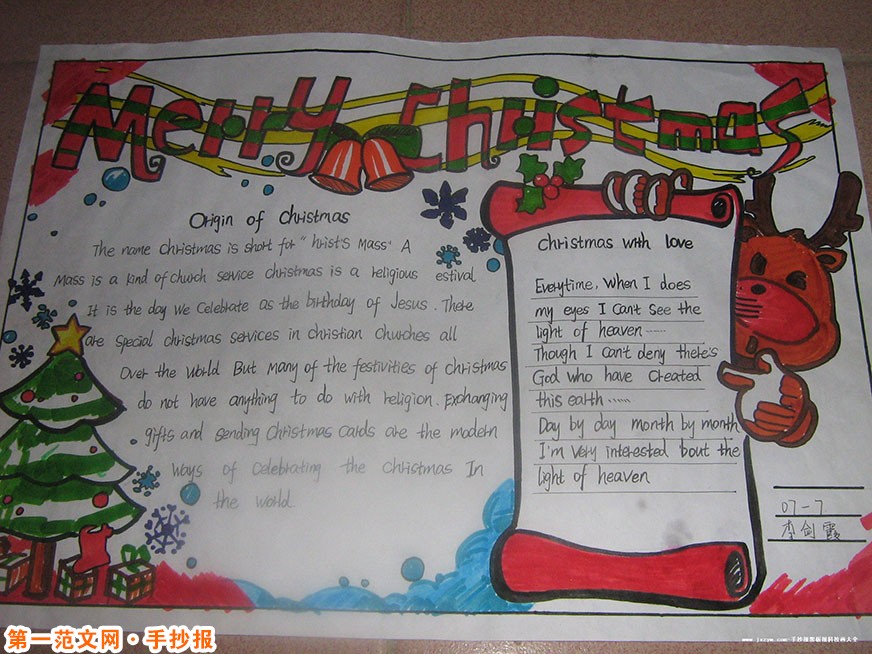 Merry Christmas
Origin of Christmas
The name Christmas is short for "hrist's Mass" A
Mass is a kind of church service christmas is a religious estival
It is the day we celebrate as the birthday of Jesus. There
are special christmas services in christian churches all
Over the world But many of the festivities of christmas
do not have anything to do with religion. Exchanging
gifts and sending Christmas cards are the modern
ways of celebrating the christmas In
the world
Christmas with love
Everytime, When I does
my eyes I can't see the
light of heaven......
Though I can't deny there's
God who have created
this earth......
Day by day month by month
I'm very interested 'bout the
light of heaven
07-7
李剑霞
第一范文网·手抄报